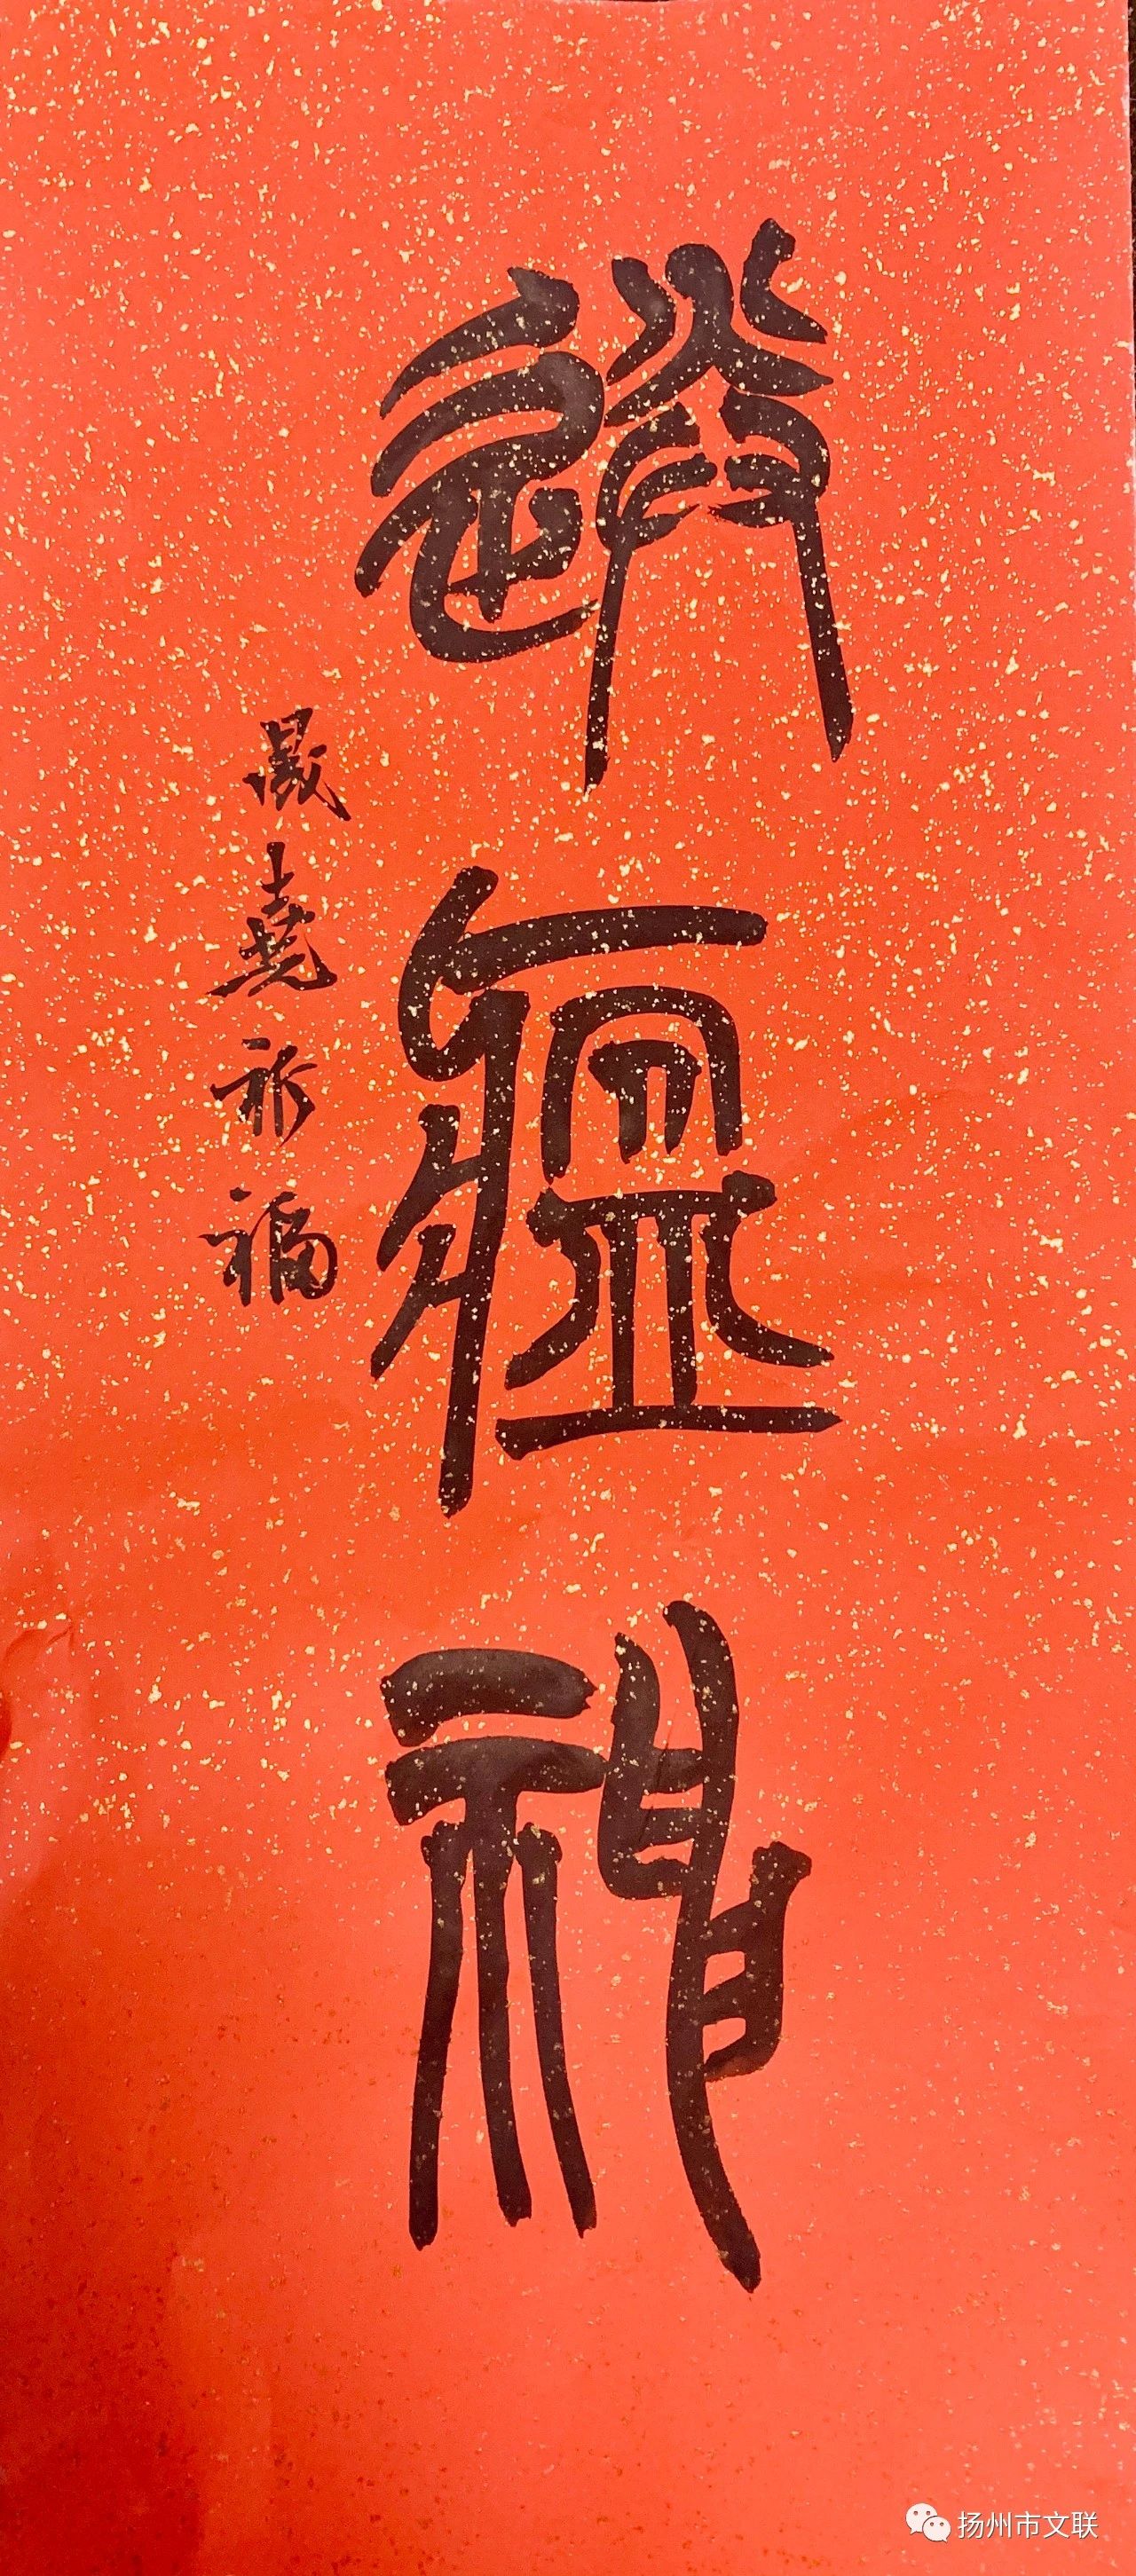 送瘟神
晟堯祈福
扬州市文联